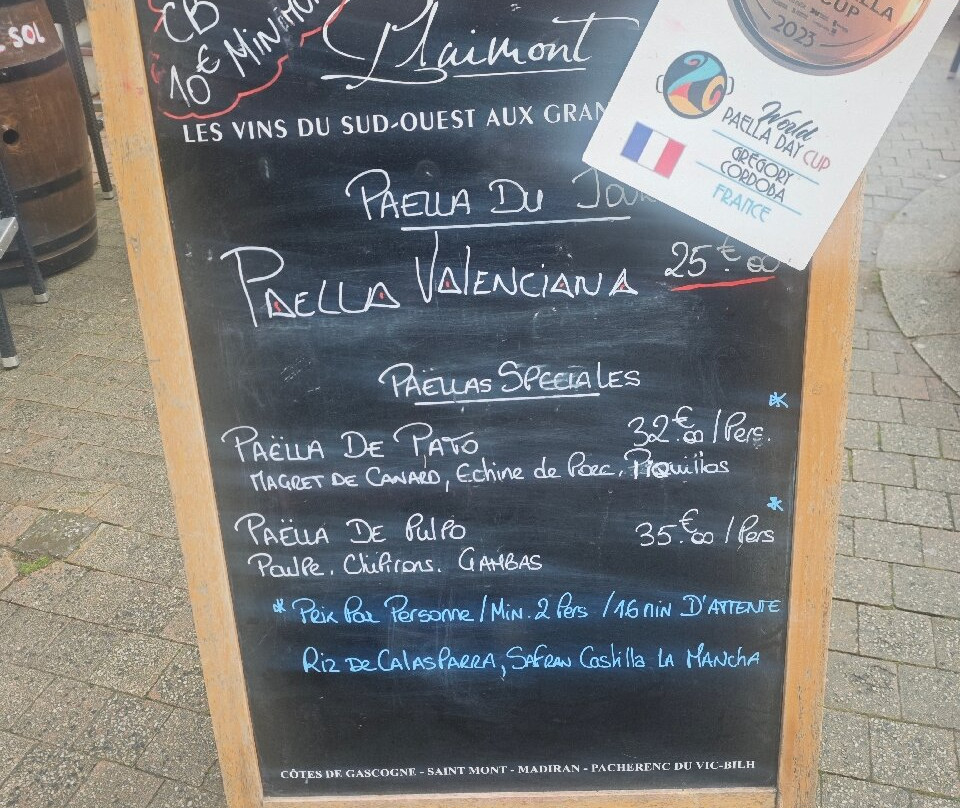 SOL
CB
10€ MINIMUM
Plaimont
LES VINS DU SUD-OUEST AUX GRAN
PAELLA
CUP
2023
World
PAELLA DAY CUP
GREGORY
CORDOBA
FRANCE
PAELLA DU JOUR
PAELLA VALENCIANA 25€.00
PAËLLAS SPECIALES
PAËLLA DE PATO 32€.00/Pers. *
MAGRET DE CANARD, Echine de Porc, PIQuillos
PAËLLA DE PULPO 35€.00/Pers *
Poulpe. Chipirons. GAMBAS
* Prix Par Personne/Min. 2 Pers /16 min D'ATTENTE
Riz DE CALASPARRA, SAFRAN Castilla LA MANCHA
CÔTES DE GASCOGNE - SAINT MONT - MADIRAN - PACHERENC DU VIC-BILH